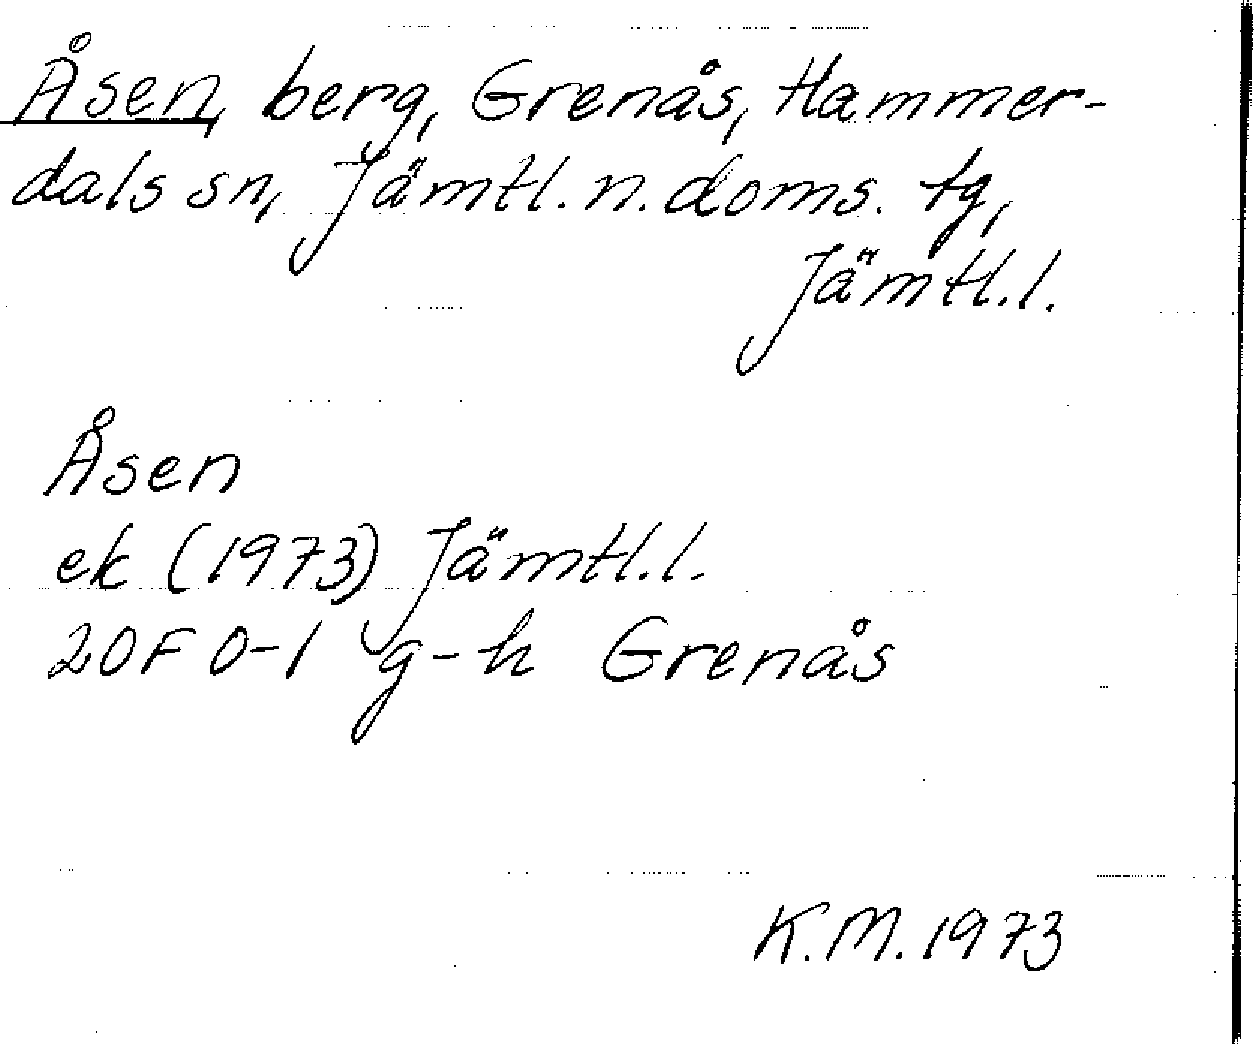 Åsen, berg, Grenås, Hammer-
dals sn, Jämtl. n. doms. tg,
Jämtl. l.
Åsen
ek (1973) Jämtl. l.
20F 0-1 g-h Grenås
K.M. 1973